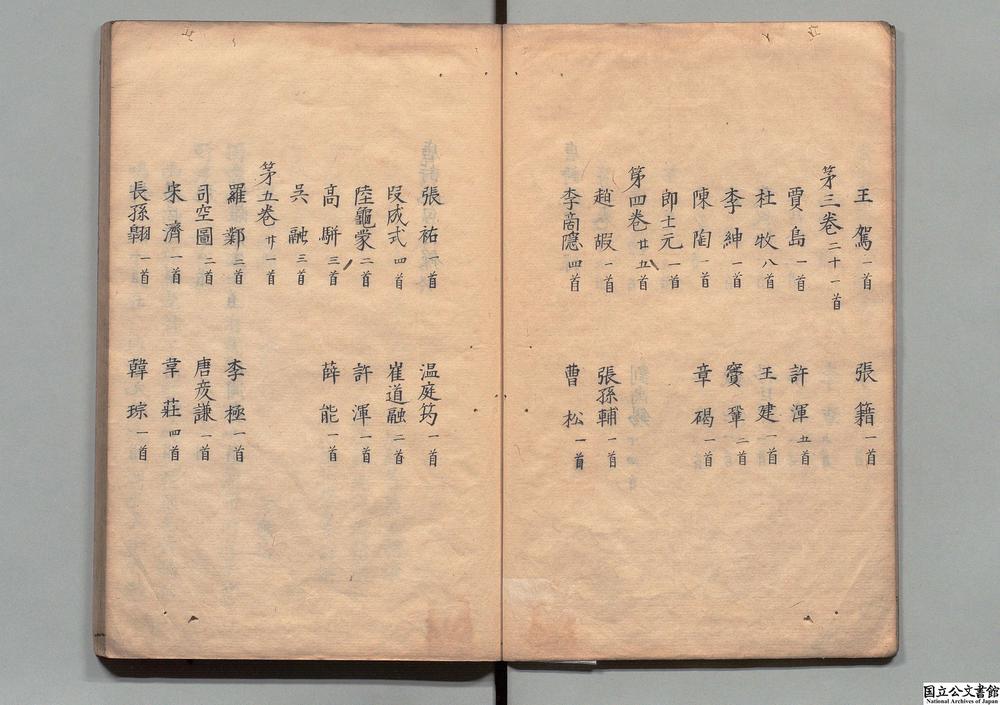 王駕一首　張籍一首
第三卷二十一首
賈島一首　許渾五首
杜牧八首　王建一首
李紳一首　竇鞏二首
陳陶一首　章碣一首
郎士元一首
第四卷廿五首
趙嘏一首　張孫輔一首
李商隱四首　曹松一首
張祐一首　温庭筠一首
段成式四首　崔道融二首
陸龜蒙二首　許渾一首
高駢三首　薛能一首
吳融三首
第五卷廿一首
羅鄴二首　李極一首
司空圖二首　唐彥謙一首
宋濟一首　韋莊四首
長孫翱一首　韓琮一首
国立公文書館
National Archives of Japan